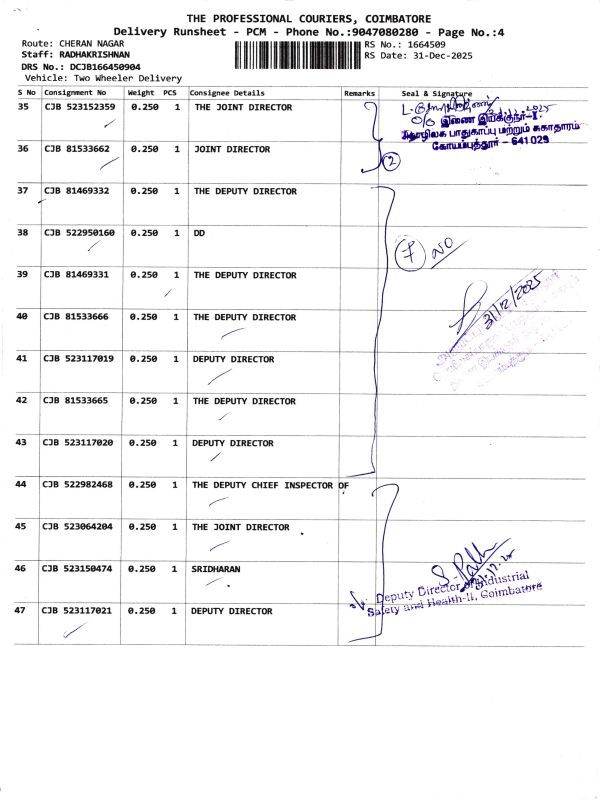 THE PROFESSIONAL COURIERS, COIMBATORE
Delivery Runsheet - PCM - Phone No.:9047080280 - Page No.:4
Route: CHERAN NAGAR
Staff: RADHAKRISHNAN
DRS No.: DCJB166450904
Vehicle: Two Wheeler Delivery
RS No.: 1664509
RS Date: 31-Dec-2025
S No Consignment No Weight PCS Consignee Details Remarks Seal & Signature
35 CJB 523152359 0.250 1 THE JOINT DIRECTOR
O/o இணை இயக்குநர்-I.
தொழிலக பாதுகாப்பு மற்றும் சுகாதாரம்
கோயம்புத்தூர் - 641 029
36 CJB 81533662 0.250 1 JOINT DIRECTOR
2
37 CJB 81469332 0.250 1 THE DEPUTY DIRECTOR
38 CJB 522950160 0.250 1 DD
7 NO
39 CJB 81469331 0.250 1 THE DEPUTY DIRECTOR
31/12/2025
40 CJB 81533666 0.250 1 THE DEPUTY DIRECTOR
41 CJB 523117019 0.250 1 DEPUTY DIRECTOR
42 CJB 81533665 0.250 1 THE DEPUTY DIRECTOR
43 CJB 523117020 0.250 1 DEPUTY DIRECTOR
44 CJB 522982468 0.250 1 THE DEPUTY CHIEF INSPECTOR OF
45 CJB 523064204 0.250 1 THE JOINT DIRECTOR
46 CJB 523150474 0.250 1 SRIDHARAN
Deputy Director of Industrial
Safety and Health-II, Coimbatore
47 CJB 523117021 0.250 1 DEPUTY DIRECTOR